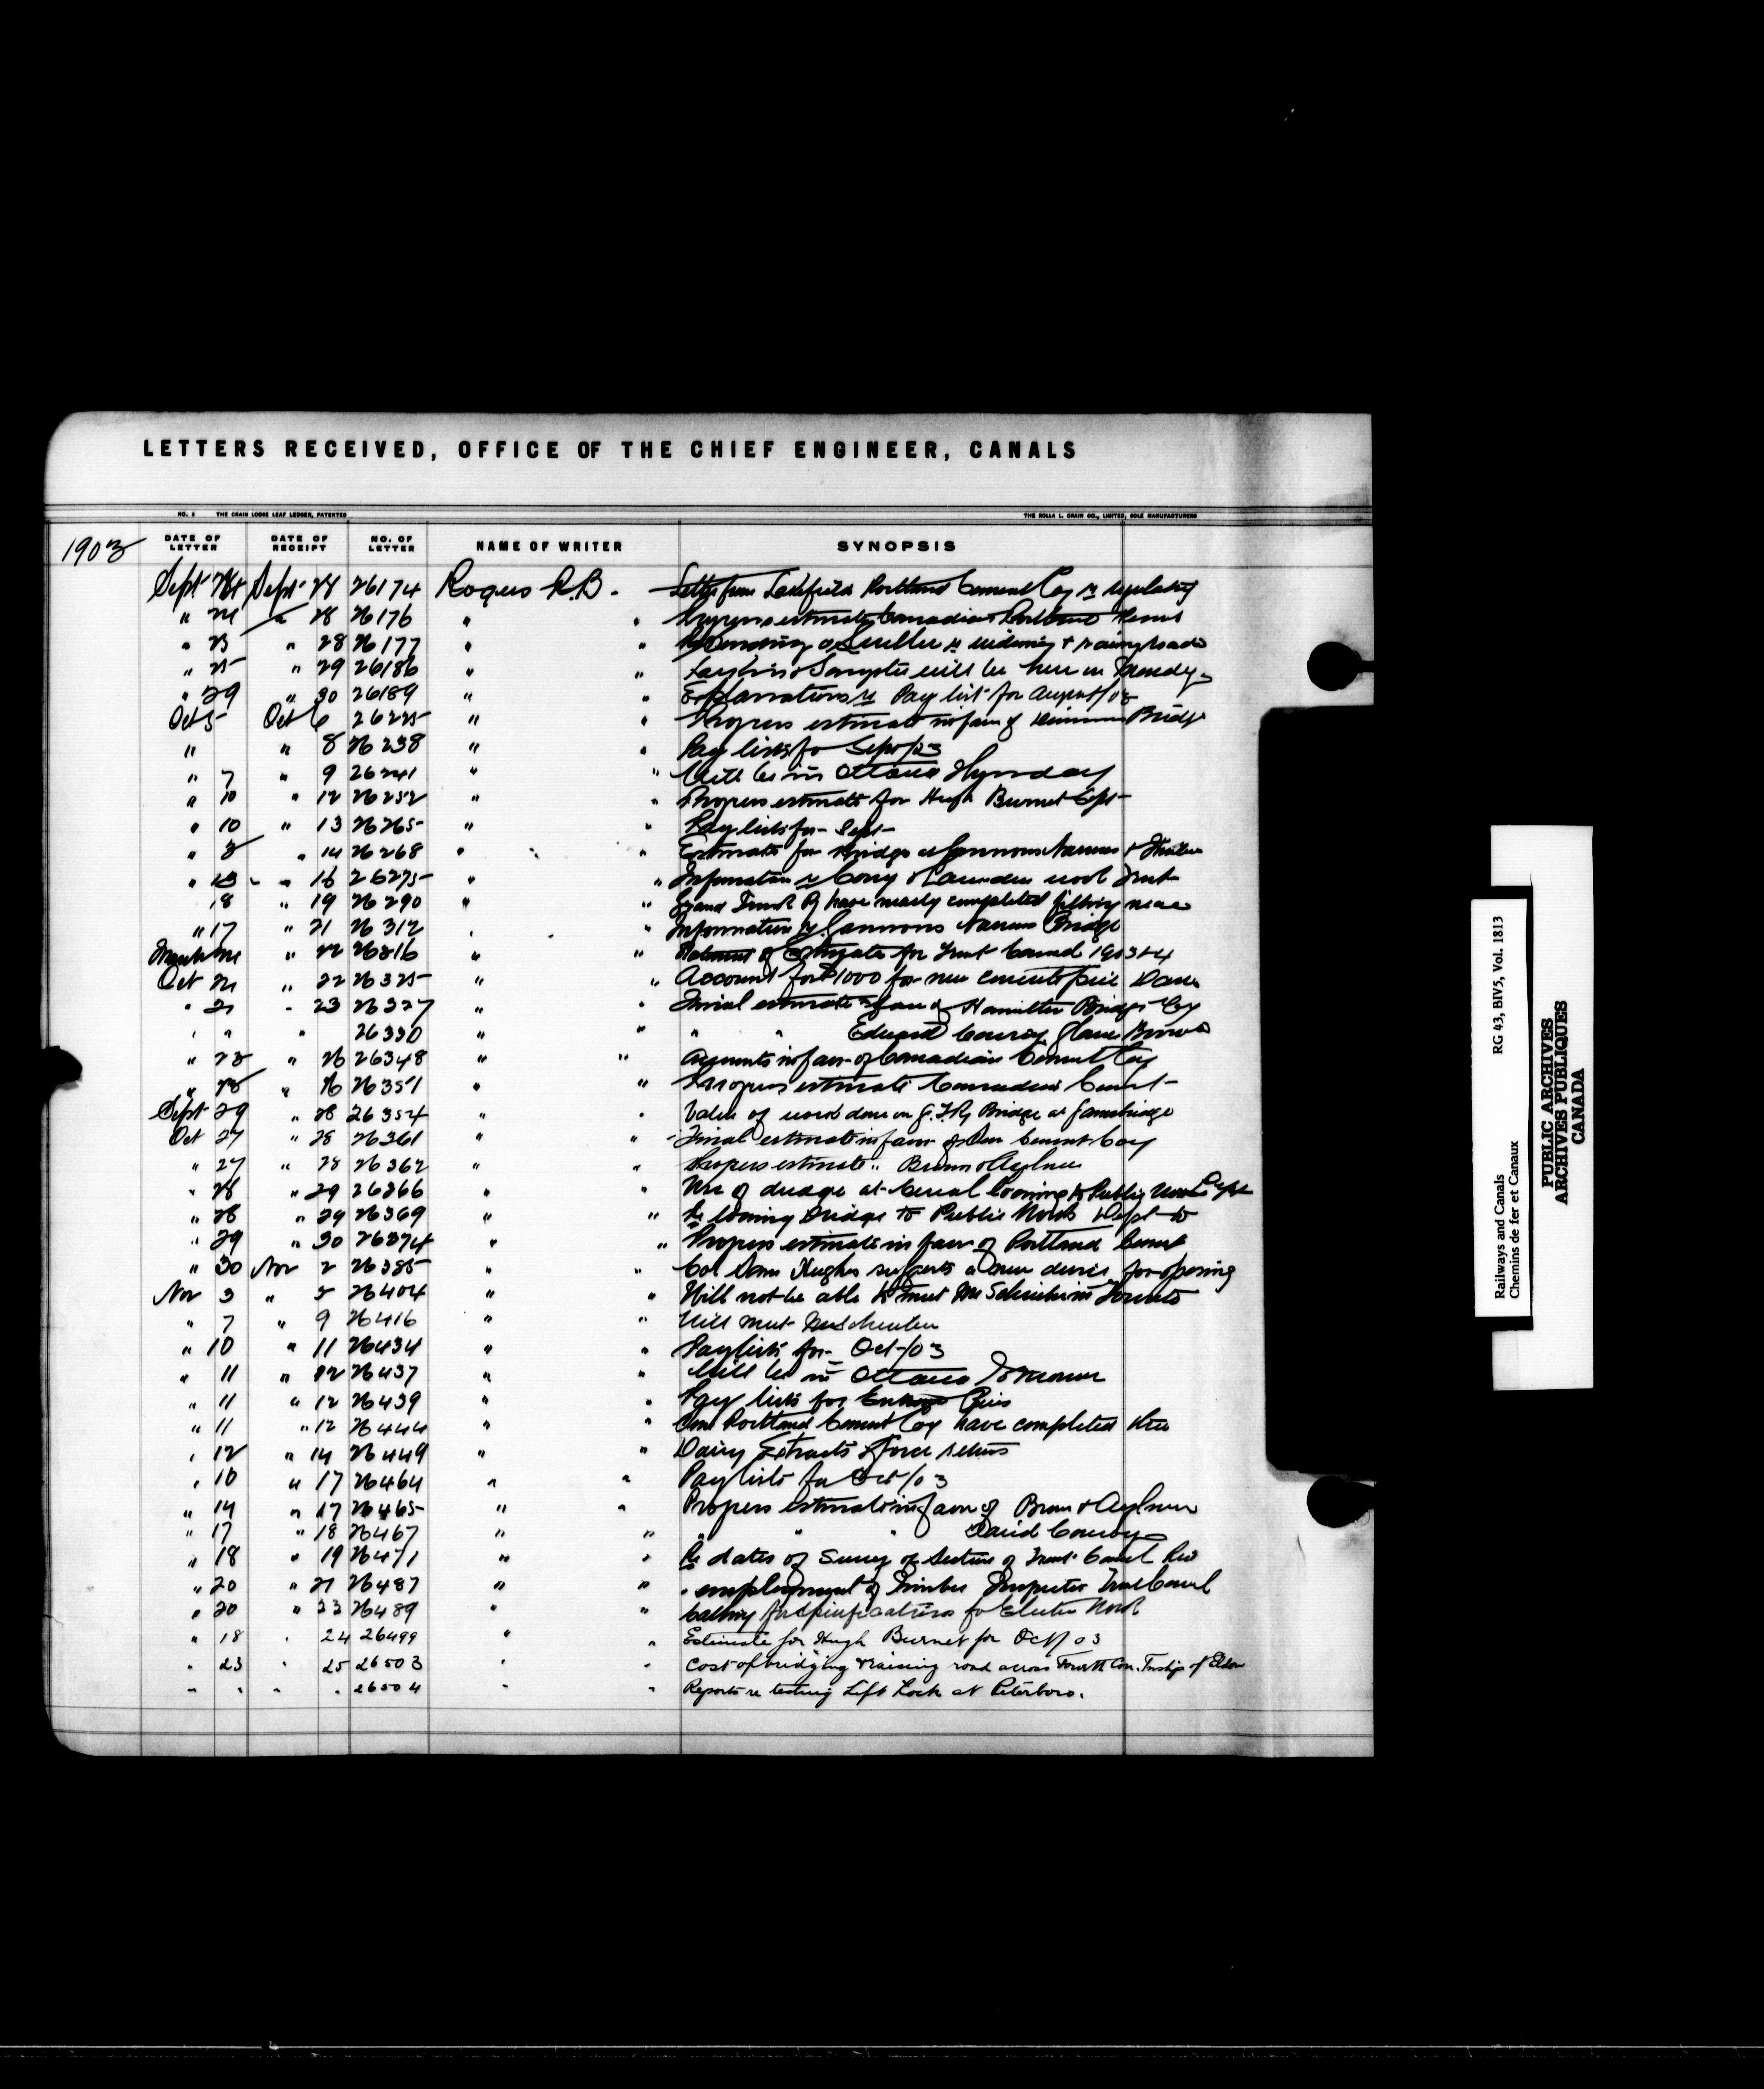 LETTERS RECEIVED, OFFICE OF THE CHIEF ENGINEER, CANALS
NO. 5 THE CRAIN LOOSE LEAF LEDGER, PATENTED THE ROLLA L. CRAIN CO., LIMITED, SOLE MANUFACTURERS
1903 DATE OF LETTER DATE OF RECEIPT NO. OF LETTER NAME OF WRITER SYNOPSIS
Sept 24 Sept 28 26174 Rogers R.B. Letter from Lakefield Portland Cement Coy re regulating
" 24 " 28 26176 " " Progress estimate Canadian Portland Cement
" 23 " 28 26177 " " re widening & raising road
" 25 " 29 26186 " " will be here on Tuesday
" 29 " 30 26189 " " Explanations re Pay list for August/03
Oct 5 Oct 6 26225 " " Progress estimate in favor of Dominion Bridge
" " 8 26238 " " Pay lists for Sept/03
" 7 " 9 26241 " " Will be in Ottawa Thursday
" 10 " 12 26252 " " Progress estimate for Hugh Burnet Sept
" 10 " 13 26265 " " Pay lists for Sept
" 8 " 14 26268 " " Estimate for Bridge at Gannons Narrows &
" 13 " 16 26275 " " Information re Corry & Laverdure work Trent
18 " 19 26290 " " Grand Trunk Ry have nearly completed filling near
" 17 " 21 26312 " Information re Gannons Narrows Bridge
" 22 26316 " " Statement of Estimates for Trent Canal 1903 & 4
Oct 21 " 22 26325 " " Account for $1000 for new concrete pier Dam
" 21 " 23 26327 " " Final estimate in favor of Hamilton Bridge Coy
" " " 26330 " " " " Edward Conroy
" 23 " 26 26348 " " Accounts in favor of Canadian Cement Coy
" 23 " 26 26351 " " Progress estimate Canadian Cement
Sept 29 " 28 26354 " " Value of work done on G.T.Ry Bridge at Gamebridge
Oct 27 " 28 26361 " " Final estimate in favor of Cement Coy
" 27 " 28 26362 " " Progress estimate " Brown & Aylmer
" 28 " 29 26366 " " Use of dredge at loaning to Public Works Dept
" 28 " 29 26369 " " Re loaning Dredge to Public Works Dept to
" 29 " 30 26374 " " Progress estimate in favor of Portland Cement
" 30 Nov 2 26385 " " Col Sam Hughes suggests a new device for opening
Nov 3 " 5 26404 " " Will not be able to meet Mr Schreiber in Toronto
" 7 " 9 26416 " " Will meet Mr Schreiber
" 10 " 11 26434 " " Paylists for Oct/03
" 11 " 12 26437 " " Will be in Ottawa Tomorrow
" 11 " 12 26439 " " Pay lists for Entrance Piers
" 11 " 12 26444 " " Can Portland Cement Coy have completed their
" 12 " 14 26449 " " Dairy Extracts & force returns
" 10 " 17 26464 " " Pay lists for Oct/03
" 14 " 17 26465 " " Progress estimate in favor of Brown & Aylmer
" 17 " 18 26467 " " " " " David Conroy
" 18 " 19 26471 " " Re dates of Survey of Section of Trent Canal
" 20 " 21 26487 " " " employment of Timber Inspector Trent Canal
" 20 " 23 26489 " " Calling for specifications for Electric Work
" 18 " 24 26499 " " Estimate for Hugh Burnet for Oct/03
" 23 " 25 26503 " " Cost of bridging & raising road across Fourth Con. Tnship of Eldon
" " " " 26504 " " Reports re testing Lift Lock at Peterboro.
Railways and Canals RG 43, BIV5, Vol. 1813
Chemins de fer et Canaux
PUBLIC ARCHIVES
ARCHIVES PUBLIQUES
CANADA